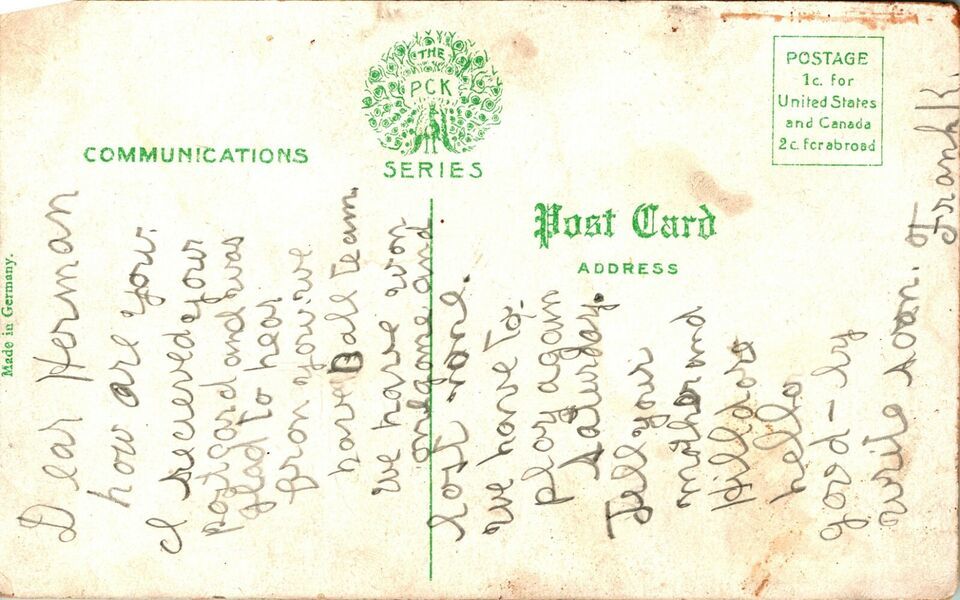 THE
PCK
SERIES
COMMUNICATIONS
POSTAGE
1c. for
United States
and Canada
2c. for abroad
Post Card
ADDRESS
Made in Germany.
Dear Herman
how are you.
I recieved your
postgard and was
glad to hear
from you. We
have Ball team.
We have won
one game and
lost none.
We have to
play again
Saturday.
Tell your
mother and
Hilldore
hello
good-by
write soon.
Frank K.